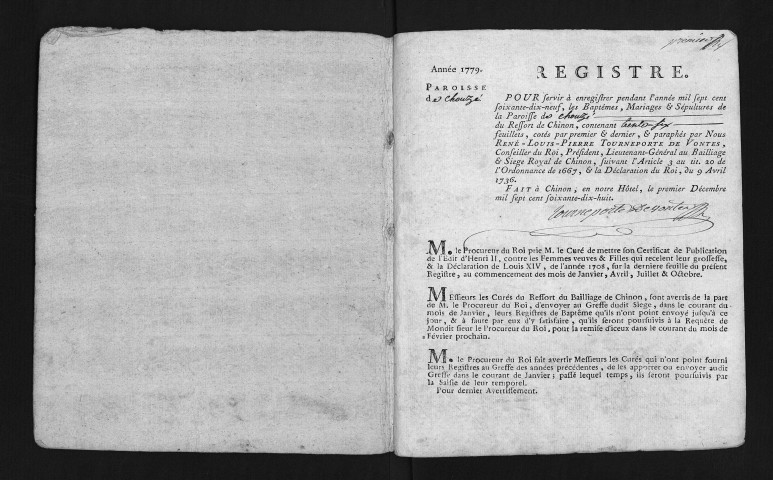 premier
Année 1779.
REGISTRE.
PAROISSE
de chouzé
POUR servir à enregistrer pendant l'année mil sept cent
soixante-dix-neuf, les Baptêmes, Mariages & Sépultures de
la Paroisse de chouzé
du Ressort de Chinon, contenant trente-six
feuillets, cotés par premier & dernier, & paraphés par Nous
RENÉ-LOUIS-PIERRE TOURNEPORTE DE VONTES,
Conseiller du Roi, Président, Lieutenant-Général au Bailliage
& Siege Royal de Chinon, suivant l'Article 3 au tit. 20 de
l'Ordonnance de 1667, & la Déclaration du Roi, du 9 Avril
1736.
FAIT à Chinon, en notre Hôtel, le premier Décembre
mil sept cent soixante-dix-huit.
Tourneporte De vontes
M. le Procureur du Roi prie M. le Curé de mettre son Certificat de Publication
de l'Edit d'Henri II, contre les Femmes veuves & Filles qui recelent leur grossesse,
& la Déclaration de Louis XIV, de l'année 1708, sur la derniere feuille du présent
Registre, au commencement des mois de Janvier, Avril, Juillet & Octobre.
MEssieurs les Curés du Ressort du Bailliage de Chinon, sont avertis de la part
de M. le Procureur du Roi, d'envoyer au Greffe dudit Siege, dans le courant du
mois de Janvier, leurs Registres de Baptême qu'ils n'ont point envoyé jusqu'à ce
jour, & à faute par eux d'y satisfaire, qu'ils seront poursuivis à la Requête de
Mondit sieur le Procureur du Roi, pour la remise d'iceux dans le courant du mois de
Février prochain.
M. le Procureur du Roi fait avertir Messieurs les Curés qui n'ont point fourni
leurs Registres au Greffe des années précédentes, de les apporter ou envoyer audit
Greffe dans le courant de Janvier; passé lequel temps, ils seront poursuivis par
la Saisie de leur temporel.
Pour dernier Avertissement.